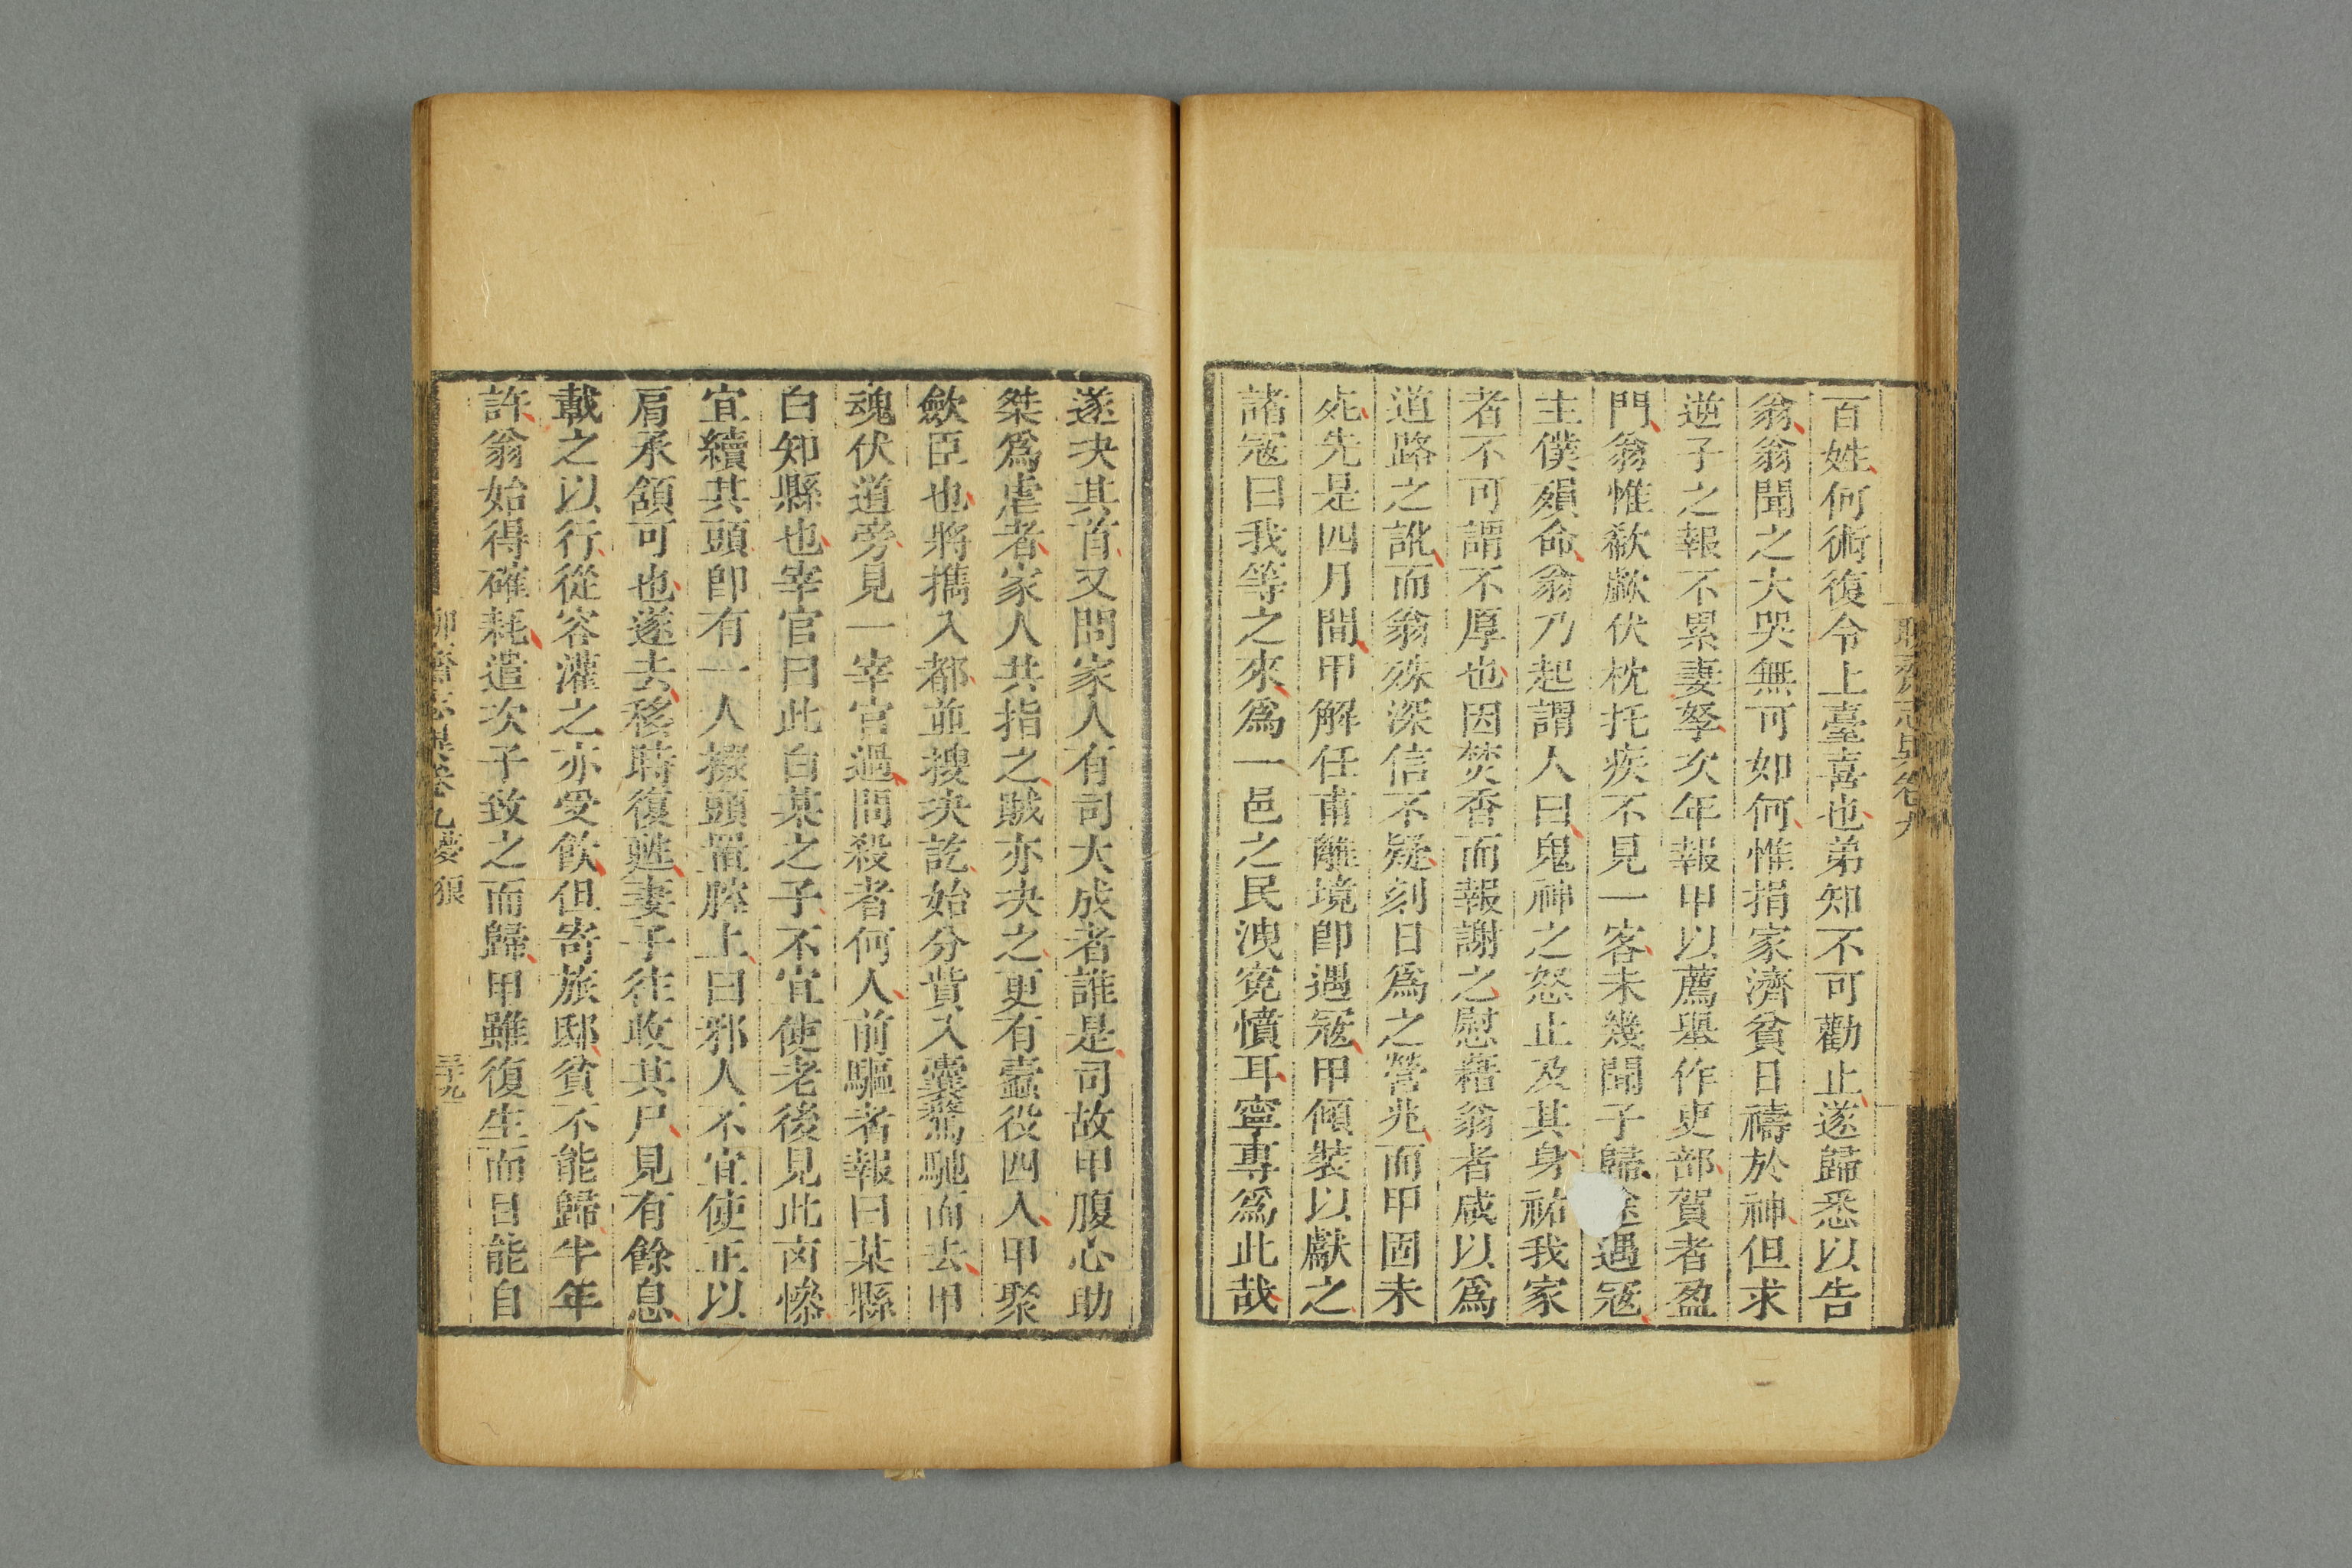 百姓何術復令上臺喜也弟知不可勸止遂歸悉以告
翁翁聞之大哭無可如何惟捐家濟貧日禱於神但求
逆子之報不累妻孥次年報甲以薦舉作吏部賀者盈
門翁惟欷歔伏枕托疾不見一客未幾聞子歸途遇寇
主僕殞命翁乃起謂人曰鬼神之怒止及其身祐我家
者不可謂不厚也因焚香而報謝之慰藉翁者咸以爲
道路之訛而翁殊深信不疑刻日爲之營兆而甲固未
死先是四月間甲解任甫離境卽遇寇甲傾裝以獻之
諸寇曰我等之來爲一邑之民洩寃憤耳寧專爲此哉
遂决其首又問家人有司大成者誰是司故甲腹心助
桀爲虐者家人共指之賊亦决之更有蠹役四人甲聚
歛臣也將攜入都並搜决訖始分貲入囊騖馳而去甲
魂伏道旁見一宰官過問殺者何人前驅者報曰某縣
白知縣也宰官曰此白某之子不宜使老後見此㐫慘
宜續其頭卽有一人掇頭置腔上曰邪人不宜使正以
肩承頷可也遂去移時復甦妻子往收其尸見有餘息
載之以行從容灌之亦受飲但寄旅邸貧不能歸半年
許翁始得確耗遣次子致之而歸甲雖復生而目能自
聊齋志異卷九 夢狼 三十九